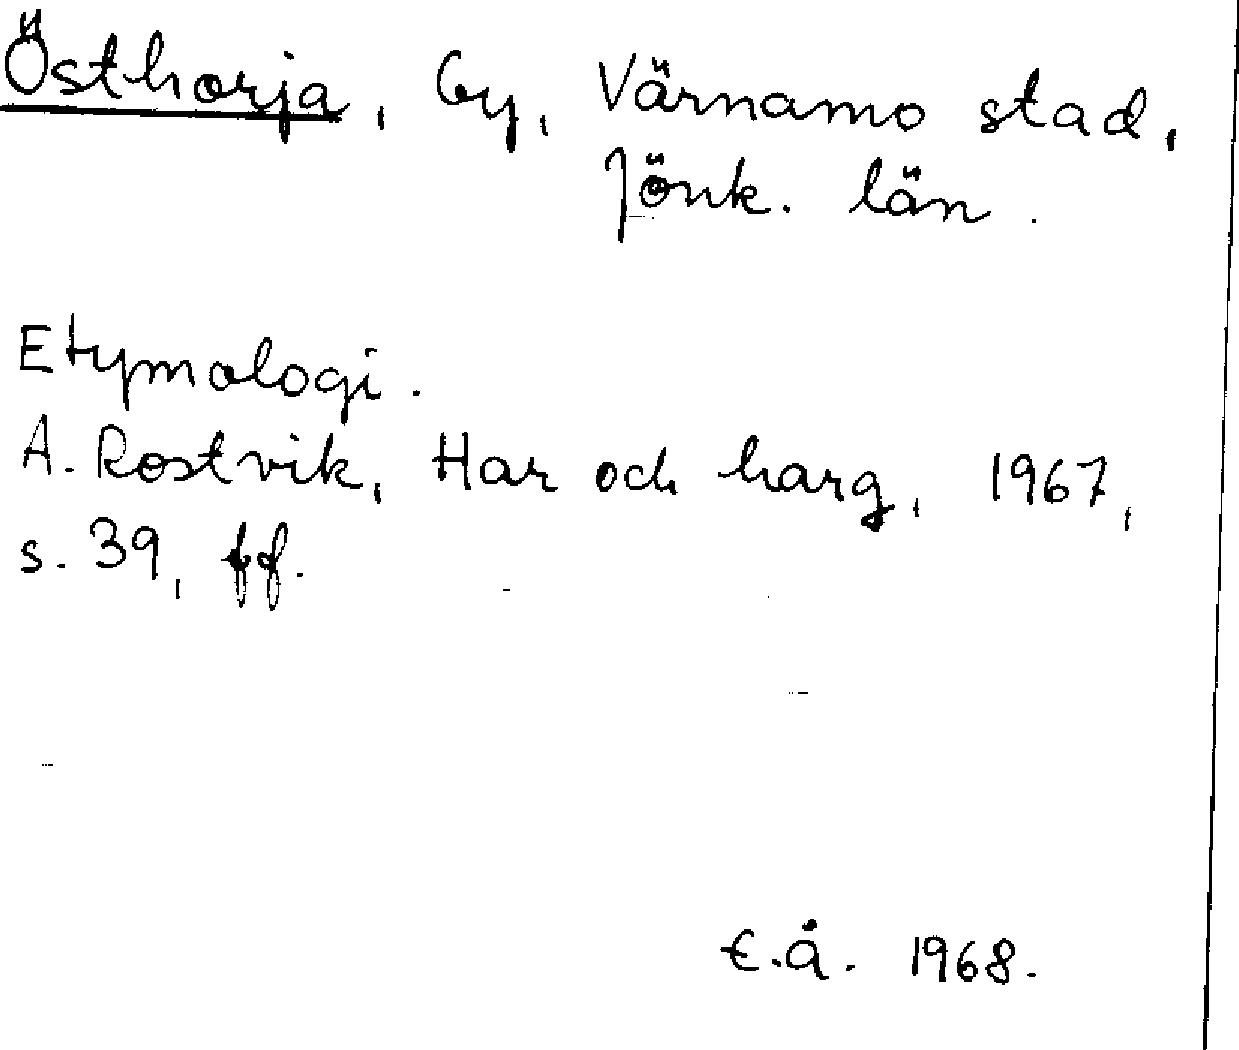 Östhorja, by, Värnamo stad,
Jönk. län.
Etymologi.
A. Rostvik, Har och harg, 1967,
s. 39, ff.
E.Å. 1968.